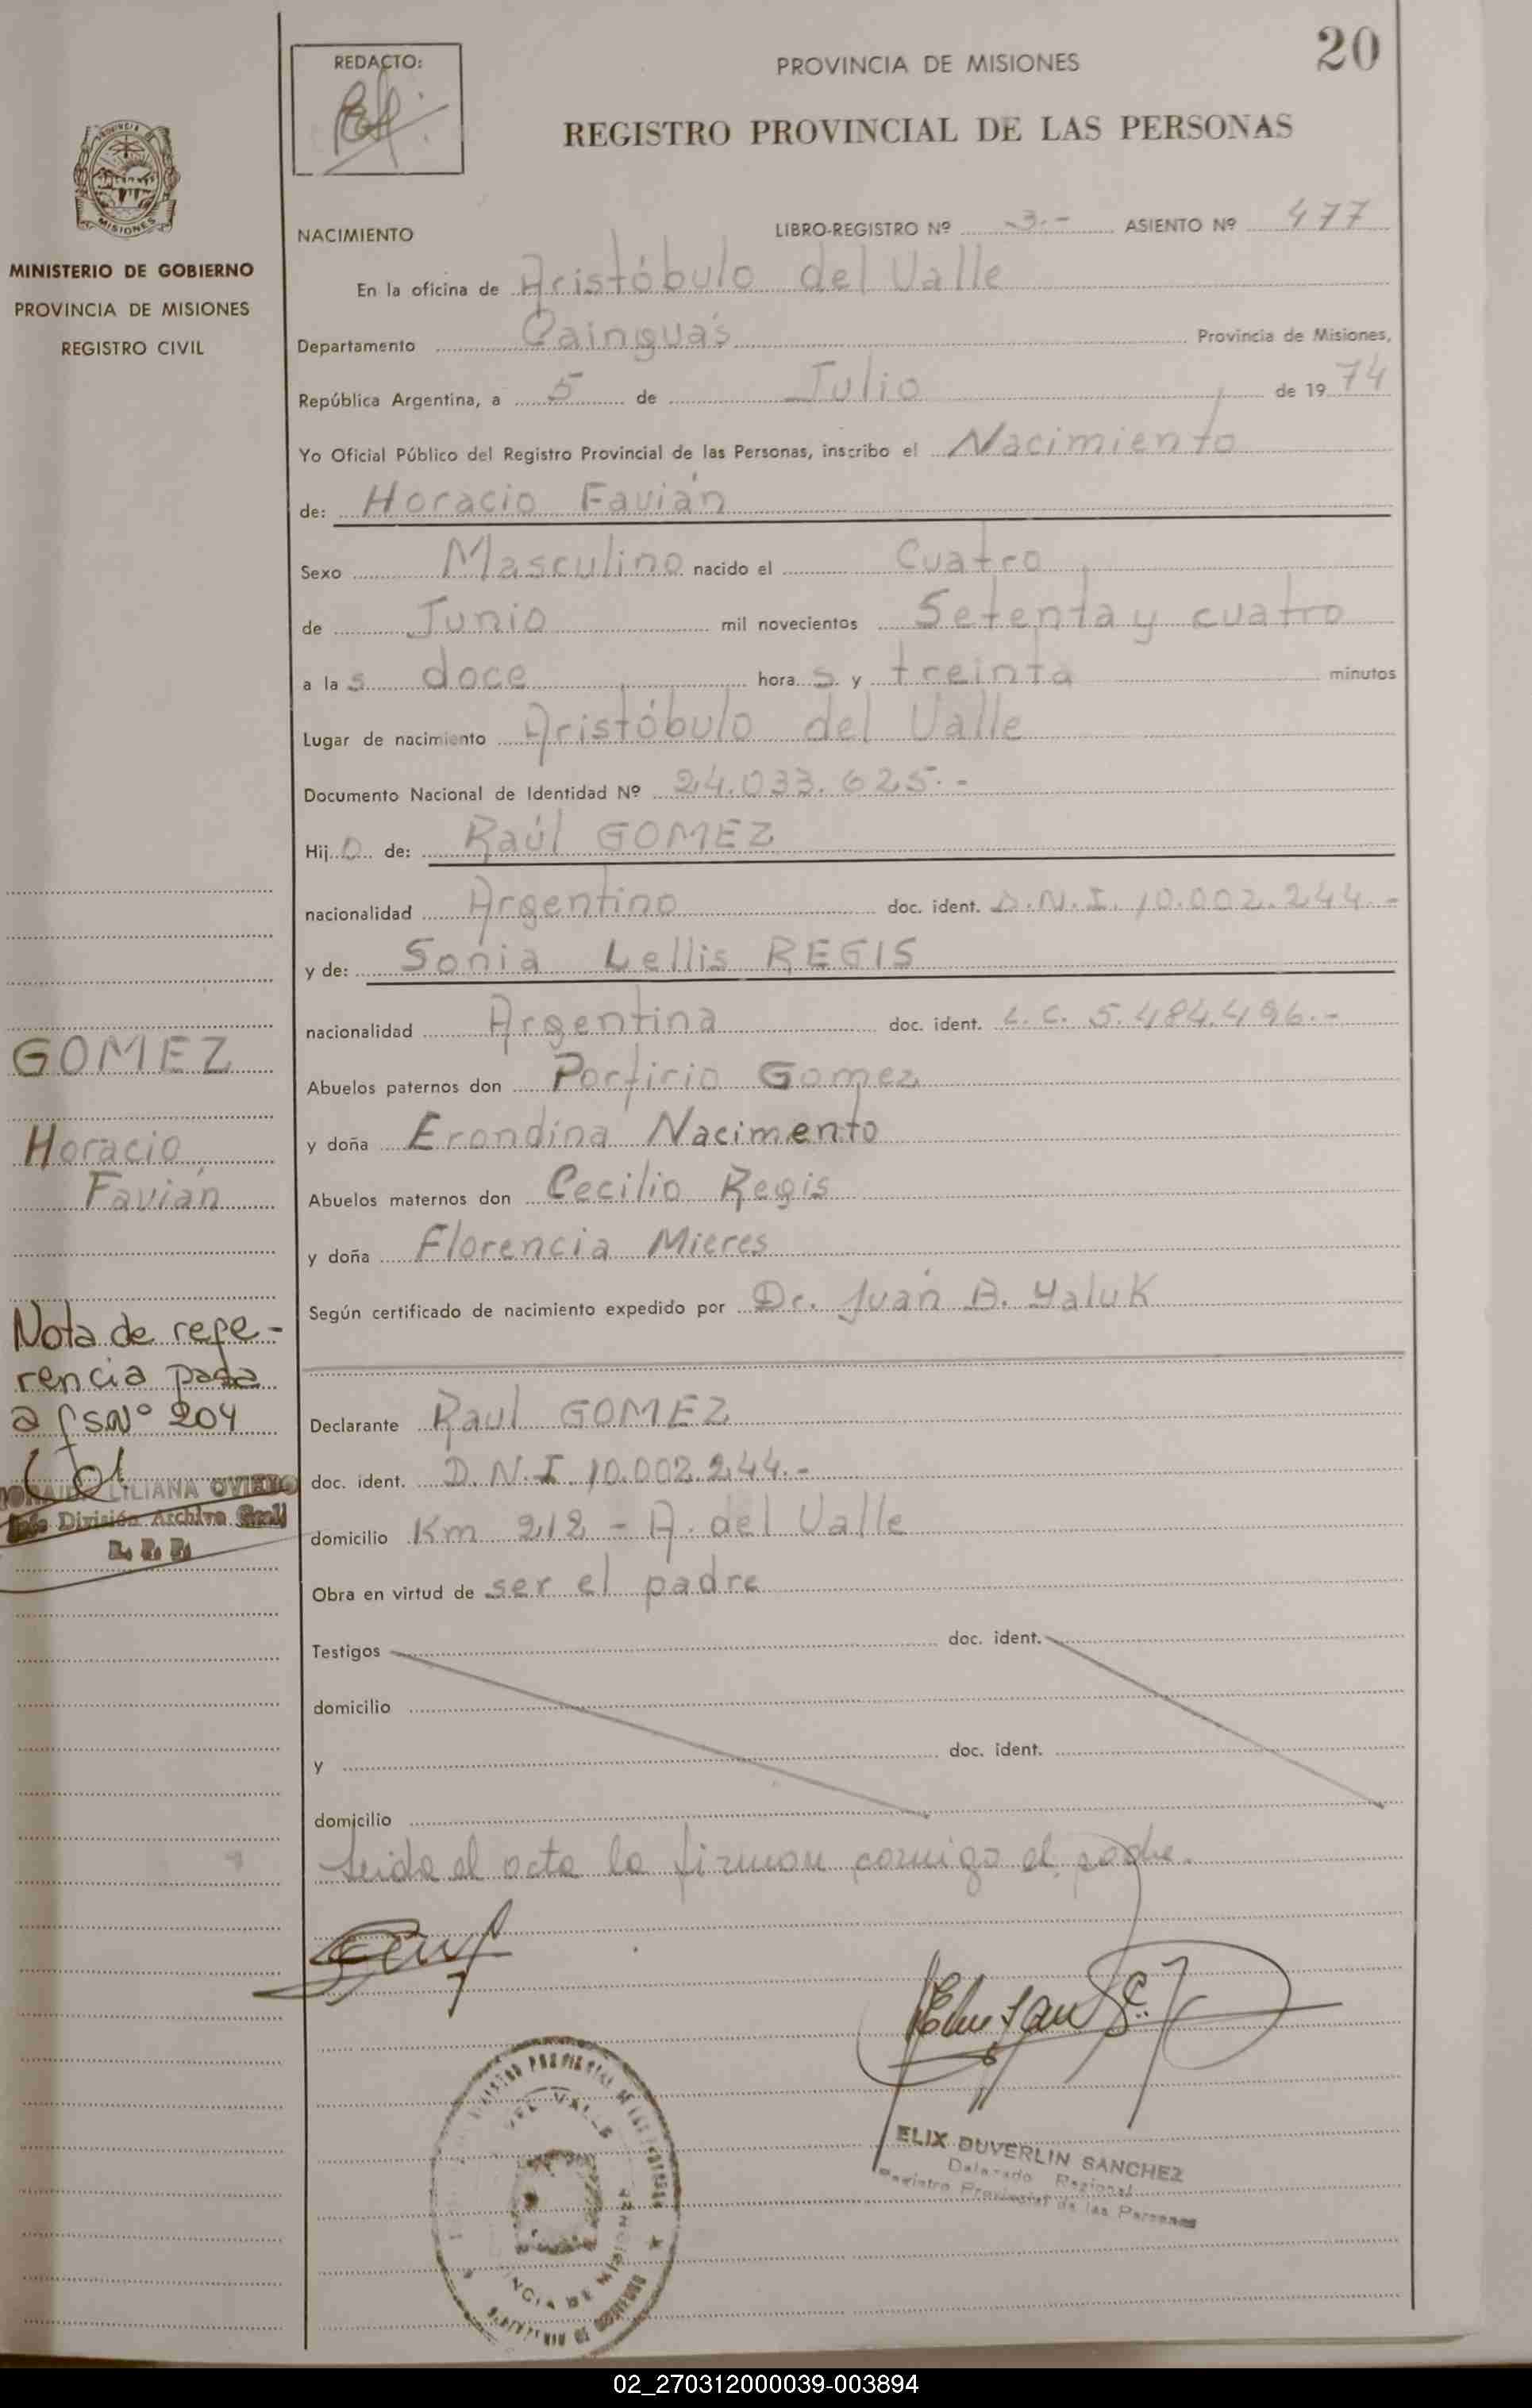 20
REDACTO:
PROVINCIA DE MISIONES
REGISTRO PROVINCIAL DE LAS PERSONAS
PROVINCIA DE
MISIONES
MINISTERIO DE GOBIERNO
PROVINCIA DE MISIONES
REGISTRO CIVIL
NACIMIENTO LIBRO-REGISTRO Nº -3.- ASIENTO Nº 477
En la oficina de Aristóbulo del Valle
Departamento Cainguás Provincia de Misiones,
República Argentina, a 5 de Julio de 1974
Yo Oficial Público del Registro Provincial de las Personas, inscribo el Nacimiento
de: Horacio Favián
Sexo Masculino nacido el Cuatro
de Junio mil novecientos Setenta y cuatro
a las doce horas y treinta minutos
Lugar de nacimiento Aristóbulo del Valle
Documento Nacional de Identidad Nº 24.033.625.-
Hijo de: Raúl GOMEZ
nacionalidad Argentino doc. ident. D.N.I. 10.002.244.-
y de: Sonia Lellis REGIS
nacionalidad Argentina doc. ident. L.C. 5.484.496.-
Abuelos paternos don Porfirio Gomez
y doña Erondina Nacimento
Abuelos maternos don Cecilio Regis
y doña Florencia Mieres
Según certificado de nacimiento expedido por Dr. Juan B. Yaluk
Declarante Raul GOMEZ
doc. ident. D.N.I 10.002.244.-
domicilio Km 212 - A. del Valle
Obra en virtud de ser el padre
Testigos doc. ident.
domicilio
y doc. ident.
domicilio
Leida el acta la firman conmigo el padre.
GOMEZ
Horacio
Favián
Nota de refe-
rencia pasa
a fs Nº 204
LILIANA OVIEDO
Jefe División Archivo Gral
R. P. P.
ELIX DUVERLIN SANCHEZ
Delegado Regional
Registro Provincial de las Personas
REGISTRO PROVINCIAL DE LAS PERSONAS
DEL VALLE
PROVINCIA DE MISIONES
MINISTERIO DE GOBIERNO
02_270312000039-003894